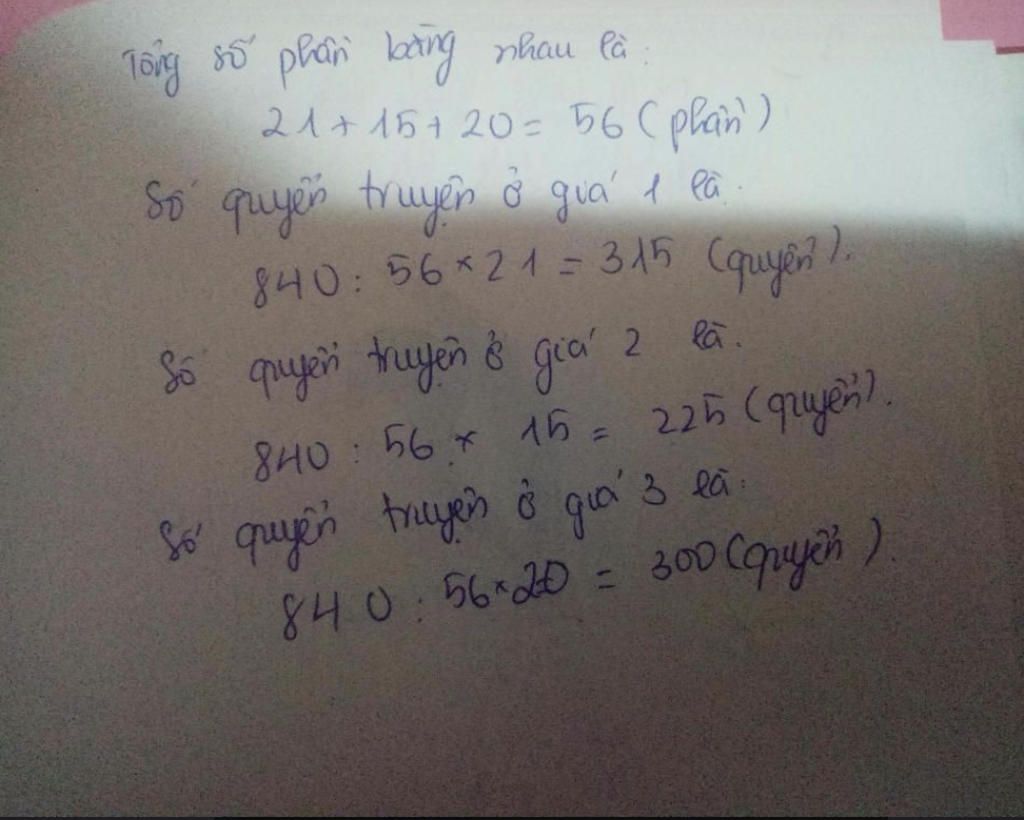 Tổng số phần bằng nhau là:
21 + 15 + 20 = 56 (phần)
Số quyển truyện ở giá 1 là.
840 : 56 × 21 = 315 (quyển).
Số quyển truyện ở giá 2 là.
840 : 56 × 15 = 225 (quyển).
Số quyển truyện ở giá 3 là:
840 : 56 × 20 = 300 (quyển).